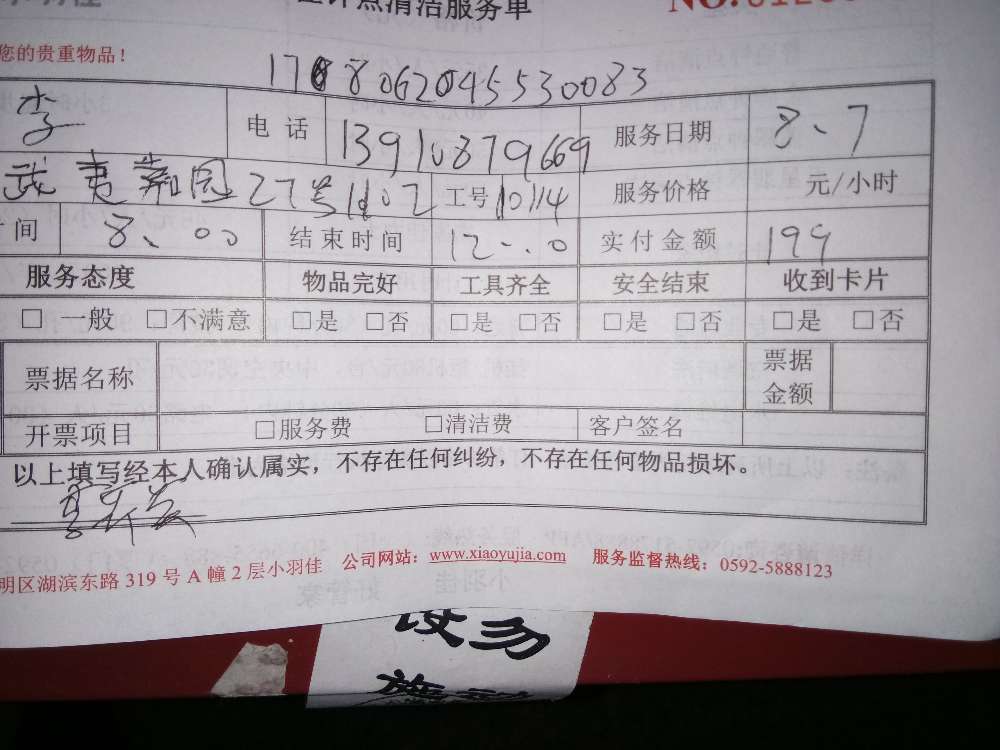 计点清洁服务单 NO.
您的贵重物品！
1708062045530083
李 电话 13910879669 服务日期 8、7
武夷嘉园27号1102 工号 10114 服务价格 元/小时
时间 8、00 结束时间 12、00 实付金额 199
服务态度 物品完好 工具齐全 安全结束 收到卡片
□ 一般 □不满意 □是 □否 □是 □否 □是 □否 □是 □否
票据名称 票据金额
开票项目 □服务费 □清洁费 客户签名
以上填写经本人确认属实，不存在任何纠纷，不存在任何物品损坏。
明区湖滨东路 319 号 A 幢 2 层小羽佳 公司网站：www.xiaoyujia.com 服务监督热线：0592-5888123